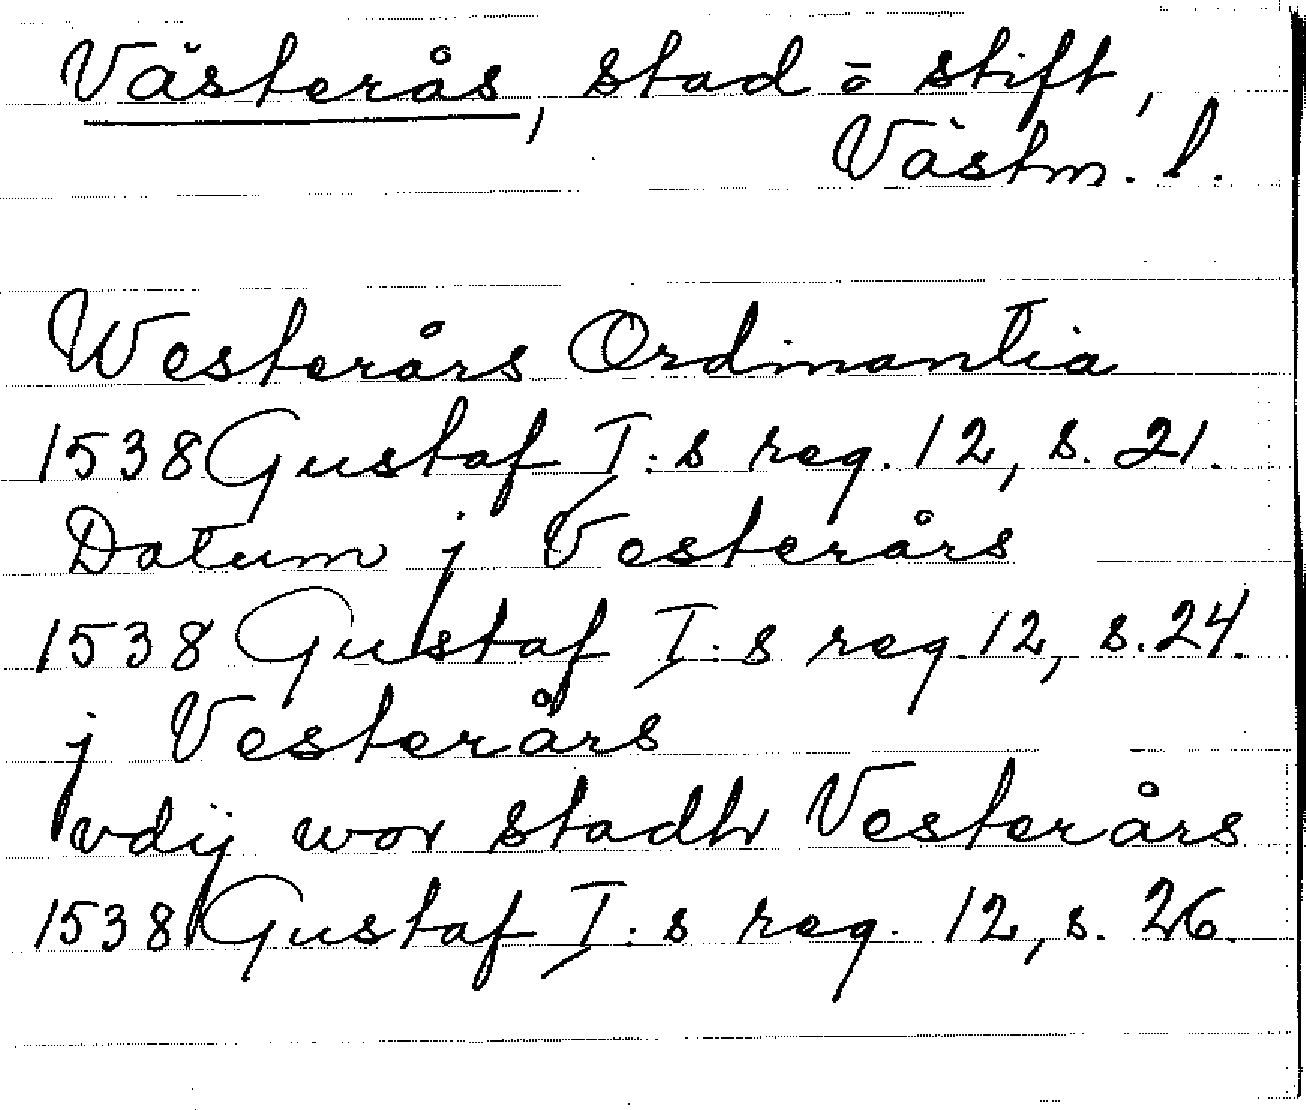 Västerås, stad o stift,
Västm. l.
Westerårs Ordinantia
1538 Gustaf I:s reg. 12, s. 21.
Datum j Vesterårs
1538 Gustaf I:s reg. 12, s. 24.
j Vesterårs
vdij wor stadh Vesterårs
1538 Gustaf I:s reg. 12, s. 26.